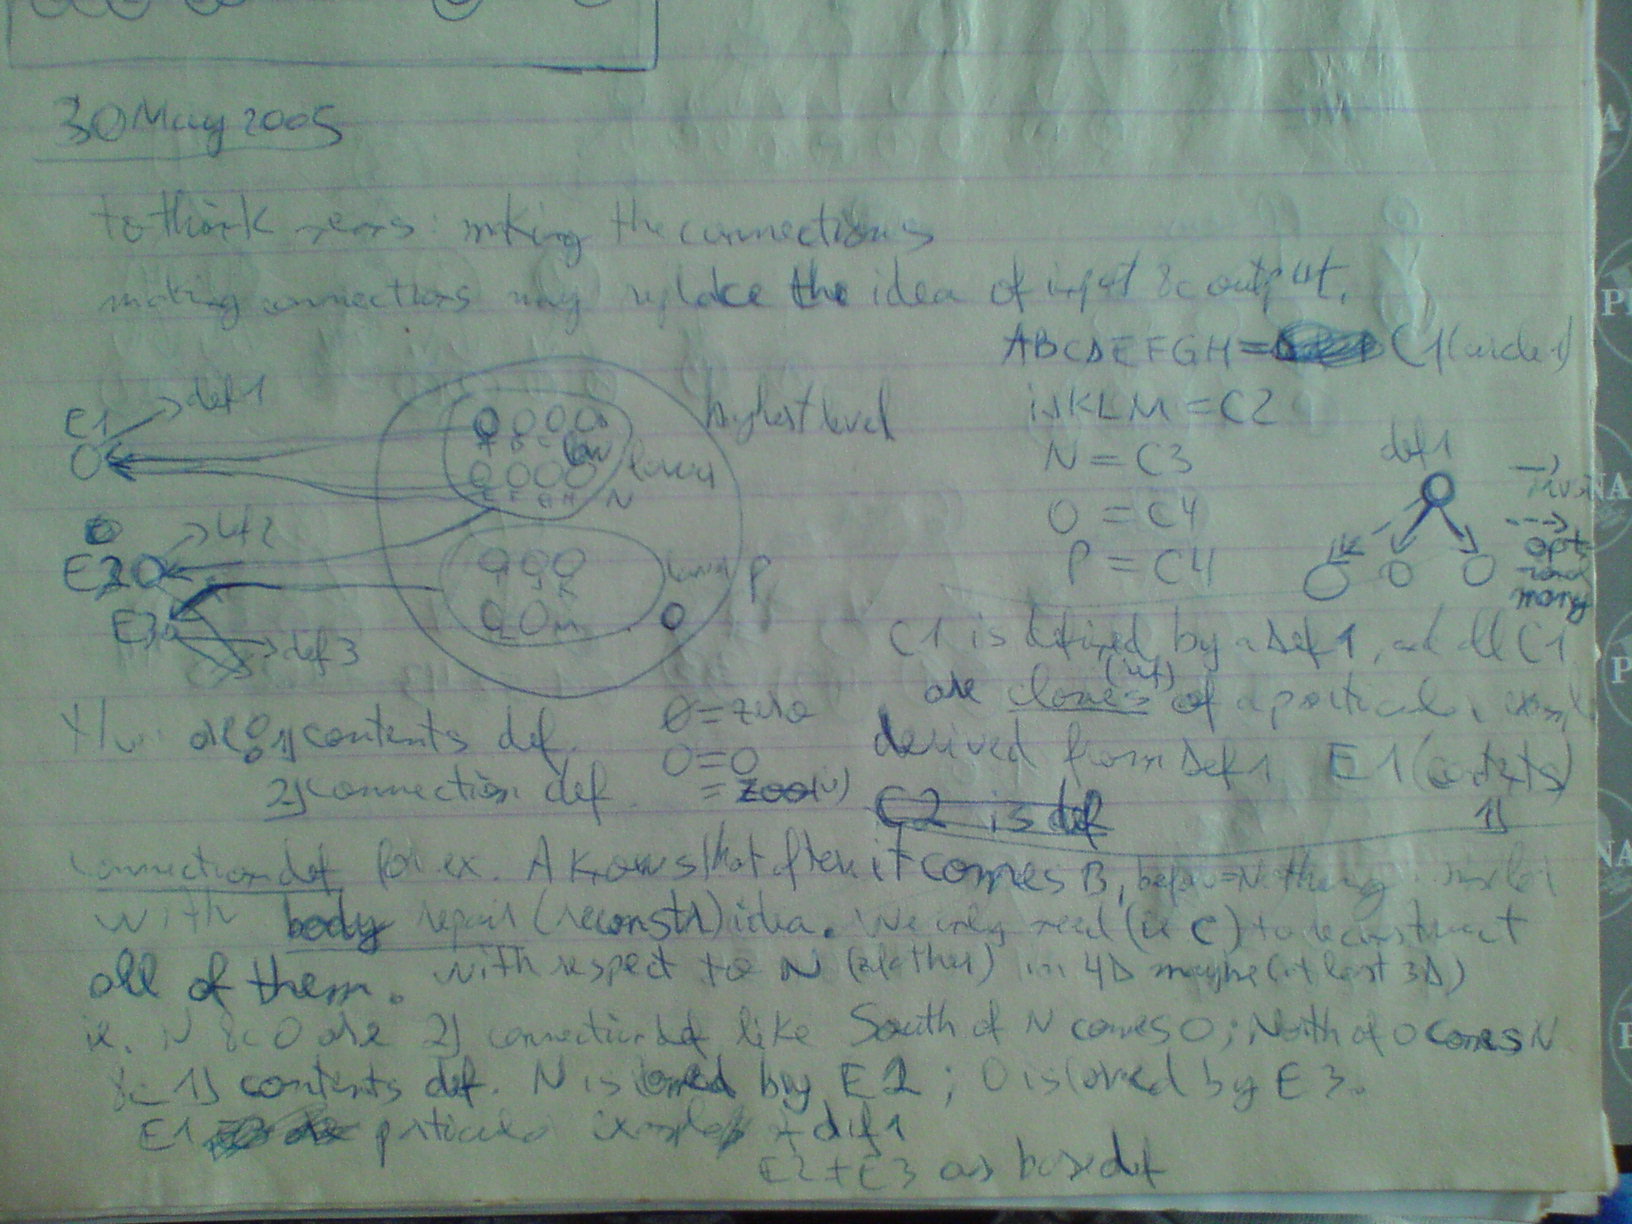 30 May 2005
to think means: making the connections
making connections may replace the idea of input & output.
ABCDEFGH = C1 (circle 1)
IJKLM = C2
N = C3
O = C4
P = C4
highest level
E1
def1
A B C
low
lower
E F G H N
def2
E2
E3
def3
lower
P
K
L M
O
def1
opt
many
C1 is defined by a Def1, and all C1
are clones of a particul. exmpl
derived from Def1 E1 (contents)
1)
are 1) contents def.
2) connection def.
O = zero
O = O
C2 is def
connection def for ex. A knows that after it comes B, before = Nothing. similar
with body repair (reconstr) idea. We only need (ie C) to reconstruct
all of them. with respect to N (of other) in 4D maybe (at least 3D)
ie. N & O are 2) connection def like South of N comes O; North of O comes N
& 1) contents def. N is formed by E2; O is formed by E3.
E1 particular + def1
E2 + E3 as base def